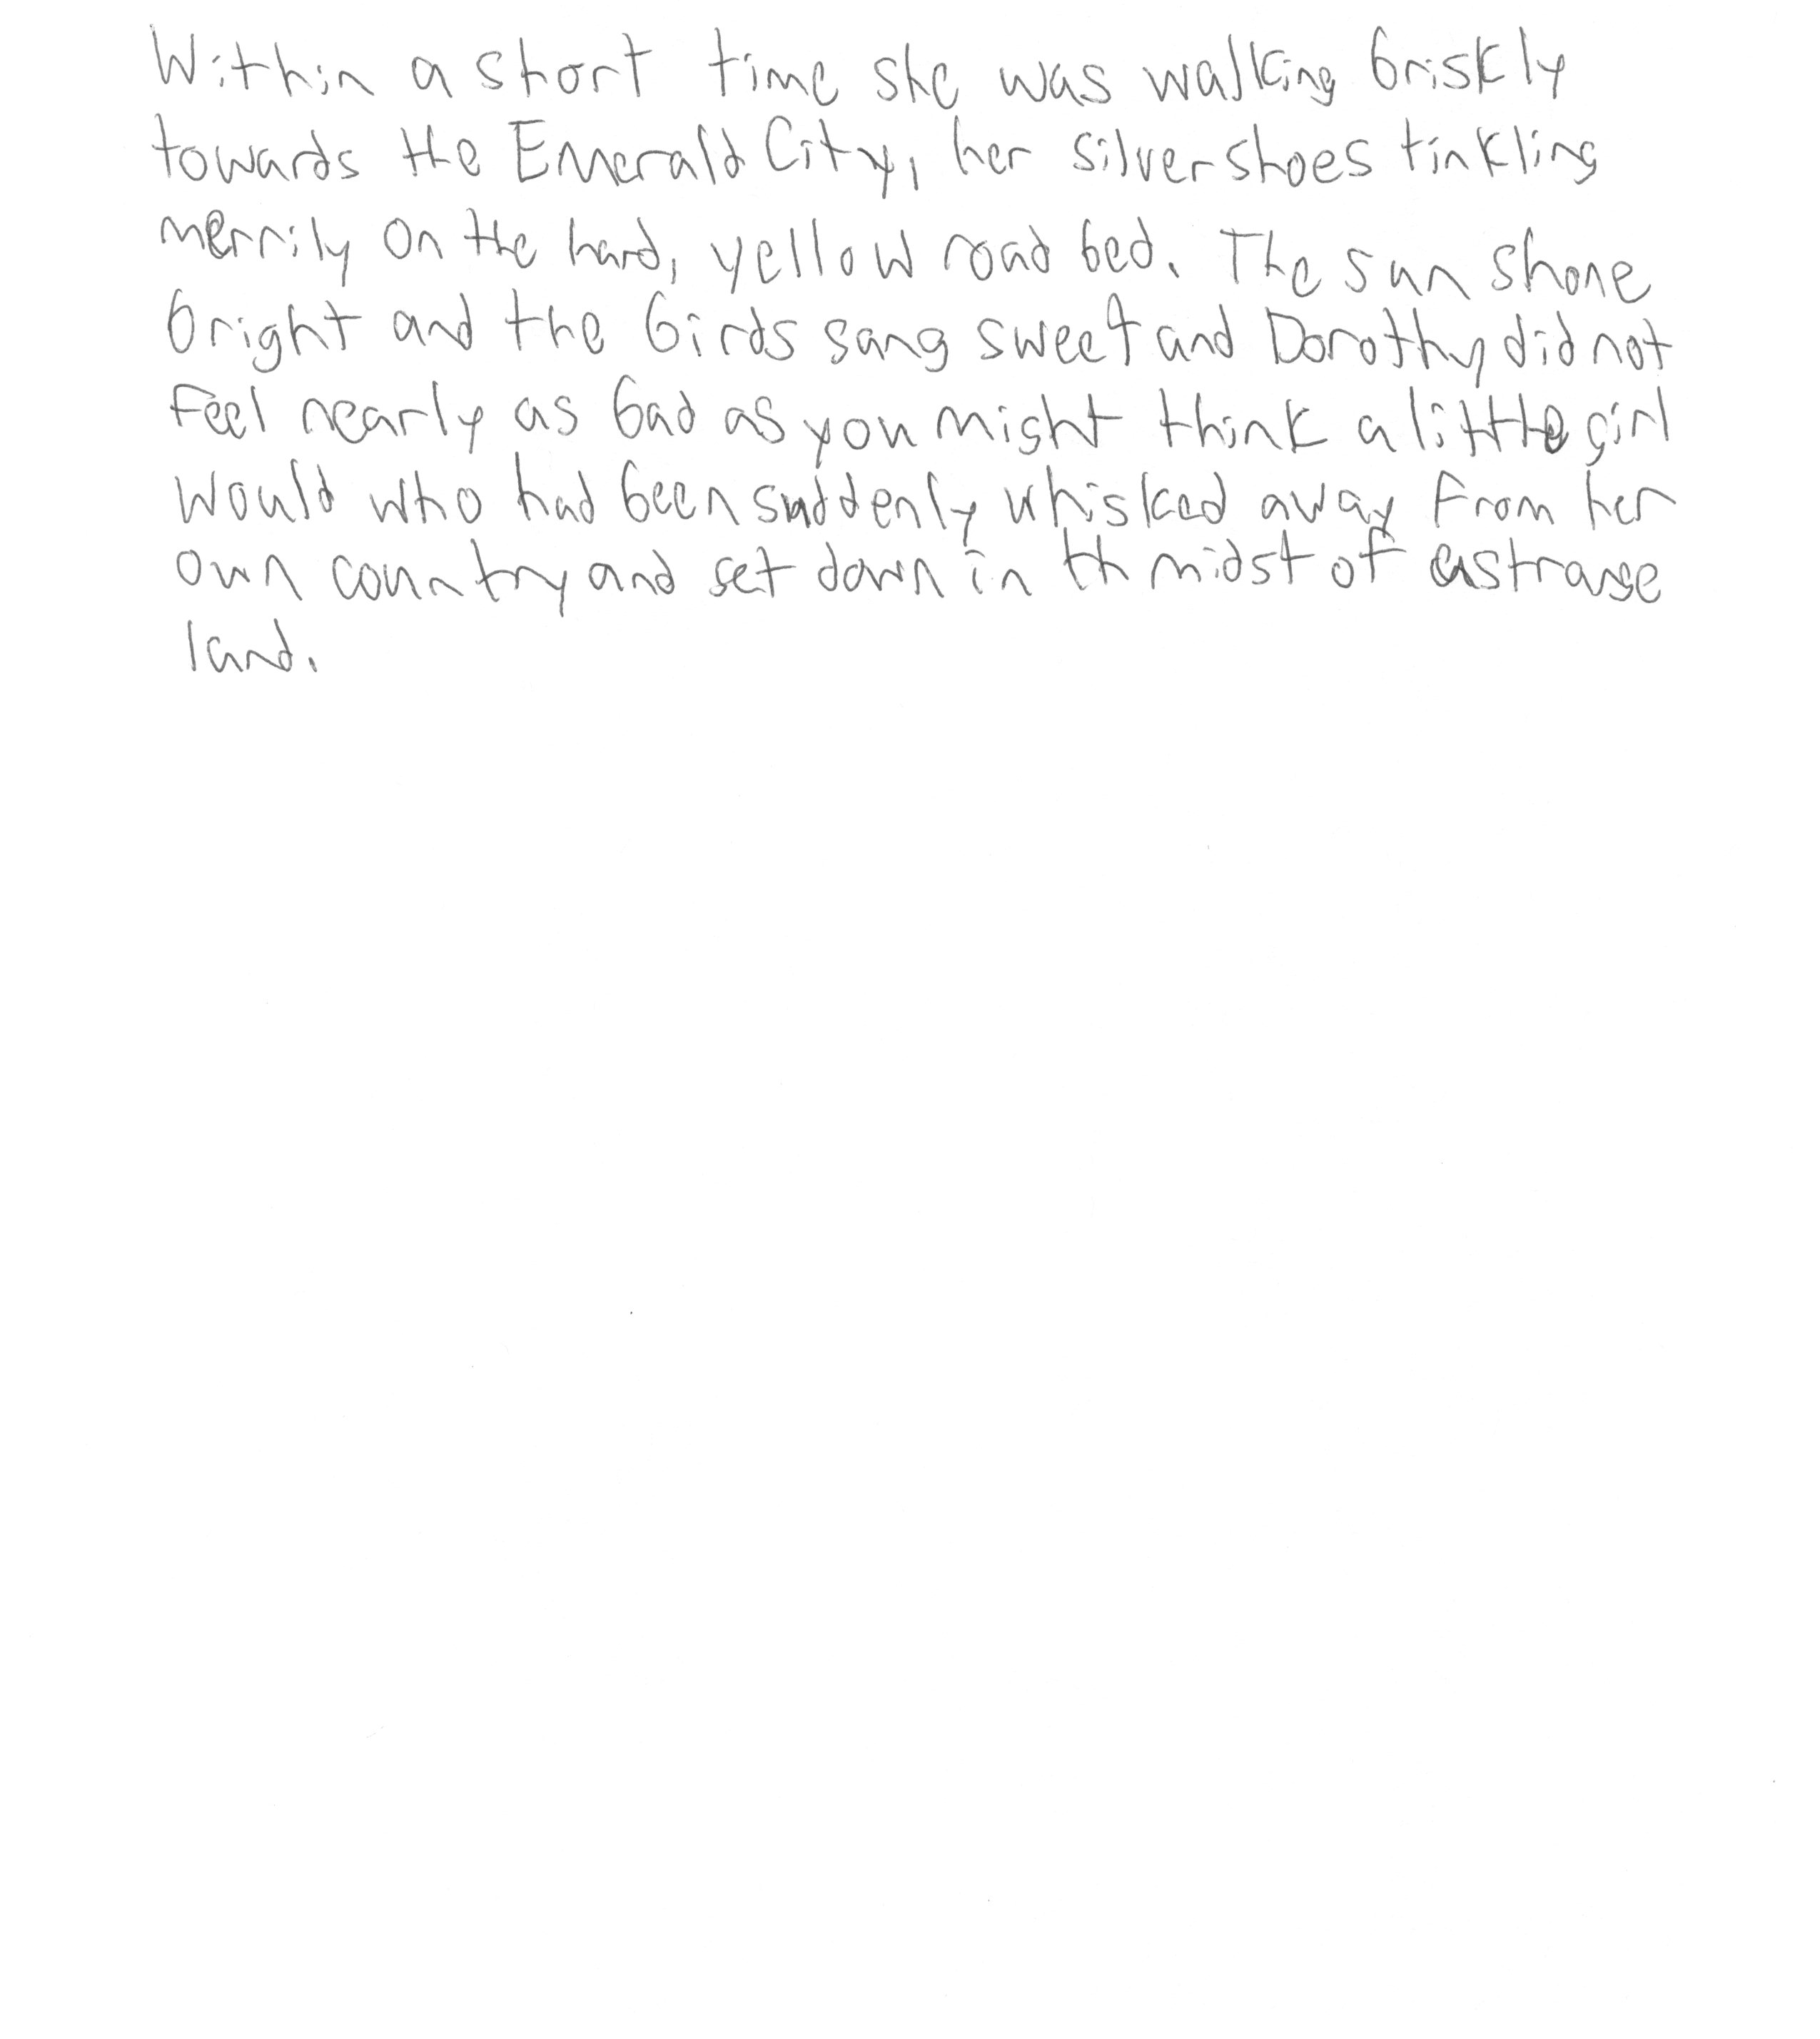 Within a short time she was walking briskly
towards the Emerald City, her silver shoes tinkling
merrily on the hard, yellow road bed. The sun shone
bright and the birds sang sweet and Dorothy did not
feel nearly as bad as you might think a little girl
would who had been suddenly whisked away from her
own country and set down in th midst of a strange
land.